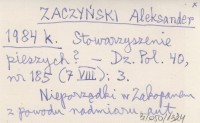 ZACZYŃSKI Aleksander
1984 k. Stowarzyszenie
pieszych? – Dz. Pol. 40,
nr 185 (7 VIII): 3.
Nieporządki w Zakopanem
z powodu nadmiaru aut